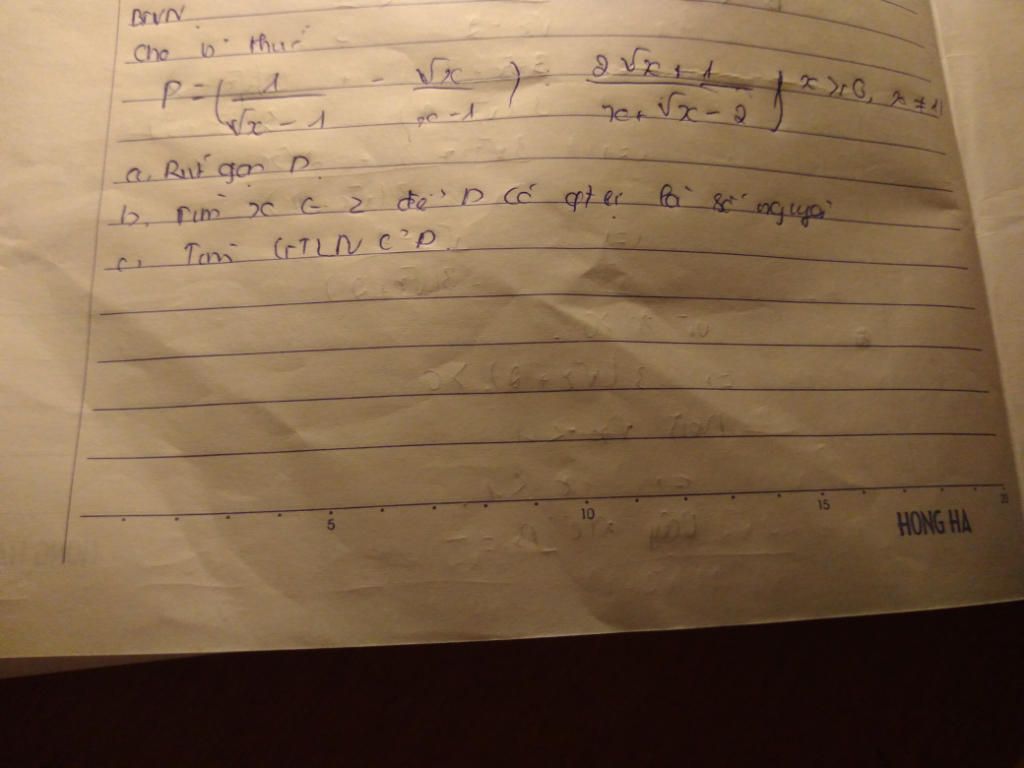 BTVN
Cho b' thức
P = ( 1/(√x - 1) - √x/(x - 1) ) : (2√x + 1)/(x + √x - 2) ) x ≥ 0, x ≠ 1
a, Rút gọn P.
b, Tìm x ∈ Z để P có gtrị là số nguyên
c, Tìm GTLN C² P.
5 10 15 20
HONG HA